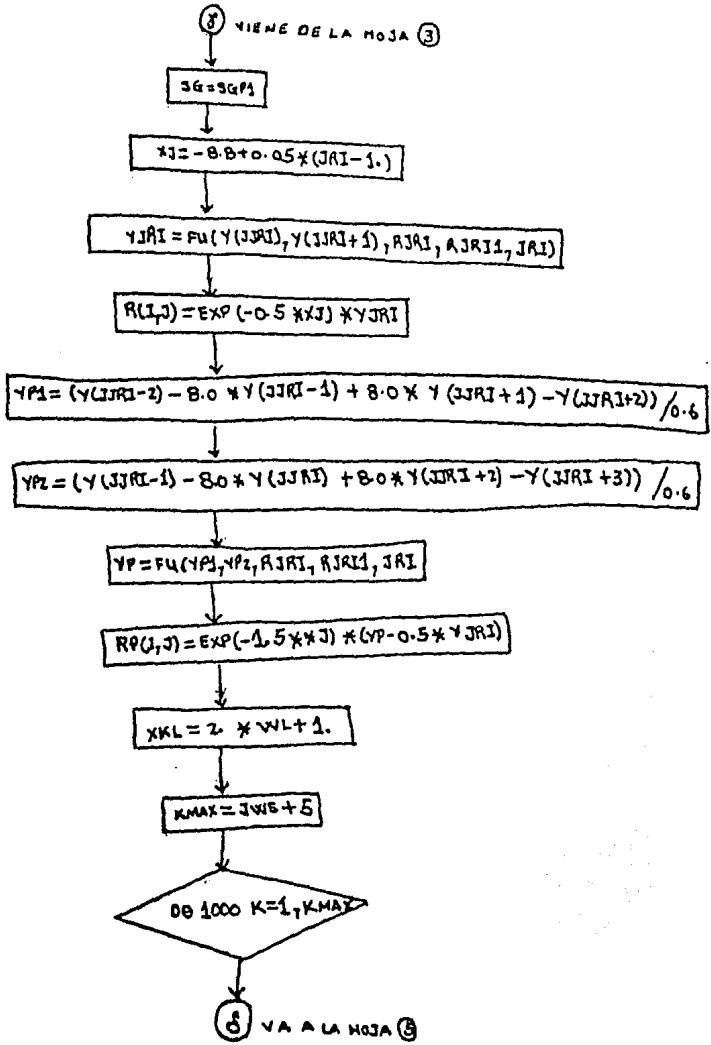 γ VIENE DE LA HOJA 3
SG=SGP1
XJ=-8.8+0.05*(JRI-1.)
YJRI=FU(Y(JJRI),Y(JJRI+1),RJRI,RJRI1,JRI)
R(I,J)=EXP(-0.5*XJ)*YJRI
YP1=(Y(JJRI-2)-8.0*Y(JJRI-1)+8.0*Y(JJRI+1)-Y(JJRI+2))/0.6
YP2=(Y(JJRI-1)-8.0*Y(JJRI)+8.0*Y(JJRI+2)-Y(JJRI+3))/0.6
YP=FU(YP1,YP2,RJRI,RJRI1,JRI
RP(I,J)=EXP(-1.5*XJ)*(YP-0.5*YJRI)
XKL=2.*WL+1.
KMAX=JWS+5
DO 1000 K=1,KMAX
δ VA A LA HOJA 5